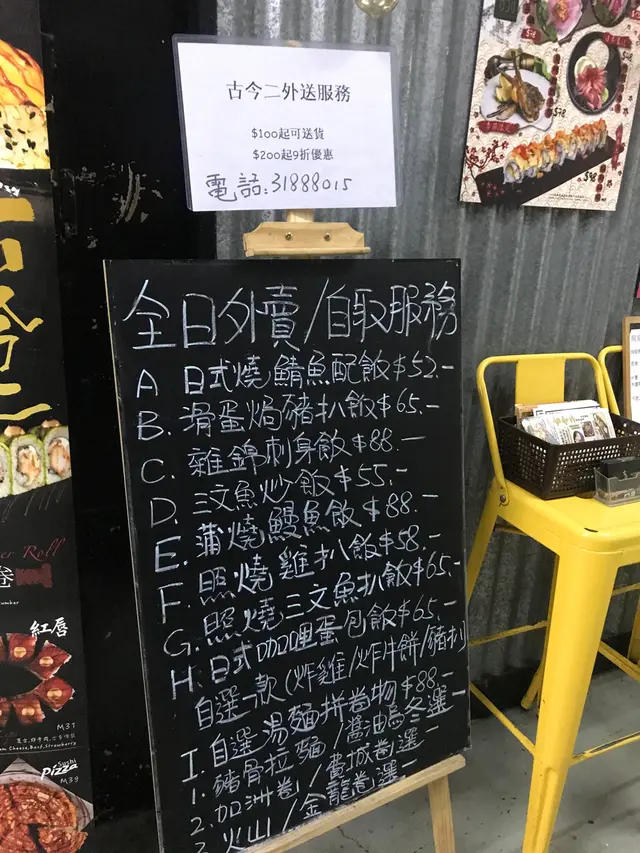 古今二外送服務
$100起可送貨
$200起9折優惠
電話:31888015
全日外賣/自取服務
A 日式燒鯖魚配飯$52.-
B. 滑蛋焗豬扒飯$65.-
C. 雜錦刺身飯$88.-
D. 三文魚炒飯$55.-
E. 蒲燒鰻魚飯$88.-
F. 照燒雞扒飯$58.-
G. 照燒三文魚扒飯$65.-
H. 日式咖哩蛋包飯$65.-
自選一款(炸雞/炸牛餅/豬扒)
I. 自選湯麵拼卷物$88.-
1. 豬骨拉麵/醬油烏冬選一
2. 加洲卷/費城卷選一
火山/金龍卷選一
古今二
Roll
卷
紅唇
M31
Sushi
Pizza
M39